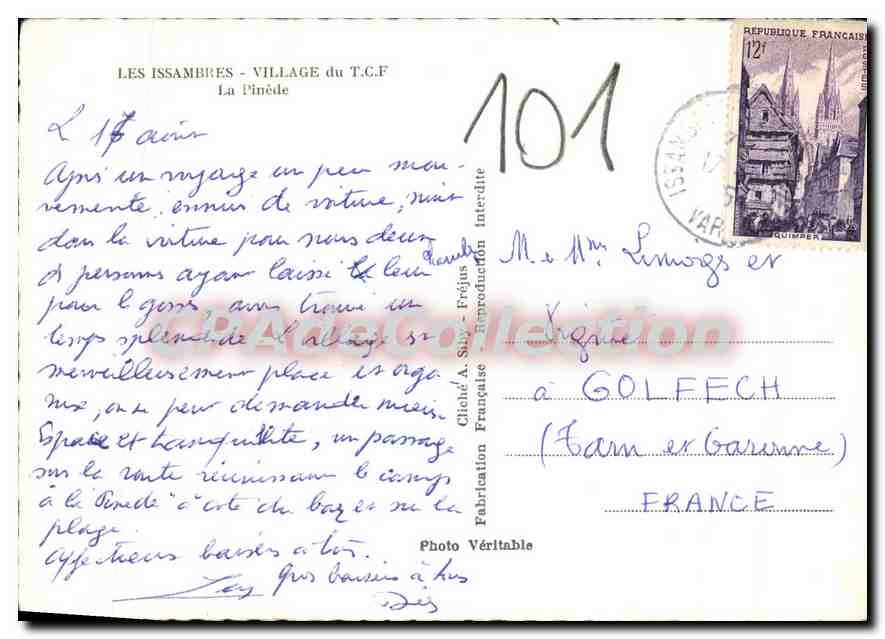 LES ISSAMBRES - VILLAGE du T.C.F
La Pinède
Le 17 août
Après un voyage un peu mou-
vementé, ennuis de voiture, nuit
dans la voiture pour nous deux
personnes ayant laissé leur chambre
pour les gosses, avons trouvé un
temps splendide. Le village est
merveilleusement placé et orga-
nisé, on ne peut demander mieux.
Espace et tranquillité, un passage
sur la route réunissant le camp
à la "Pinède" à côté du bar et sur la
plage.
Affectueux baisers à tous.
Gros baisers à tous
Cliché A. Siby - Fréjus
Fabrication Française - Reproduction interdite
Photo Véritable
101
ISSAMBRES
17
5
VAR
RÉPUBLIQUE FRANÇAISE
12f
QUIMPER
M. & Mme Limogs et
à GOLFECH
(Tarn et Garonne)
FRANCE
CPAdeCollection